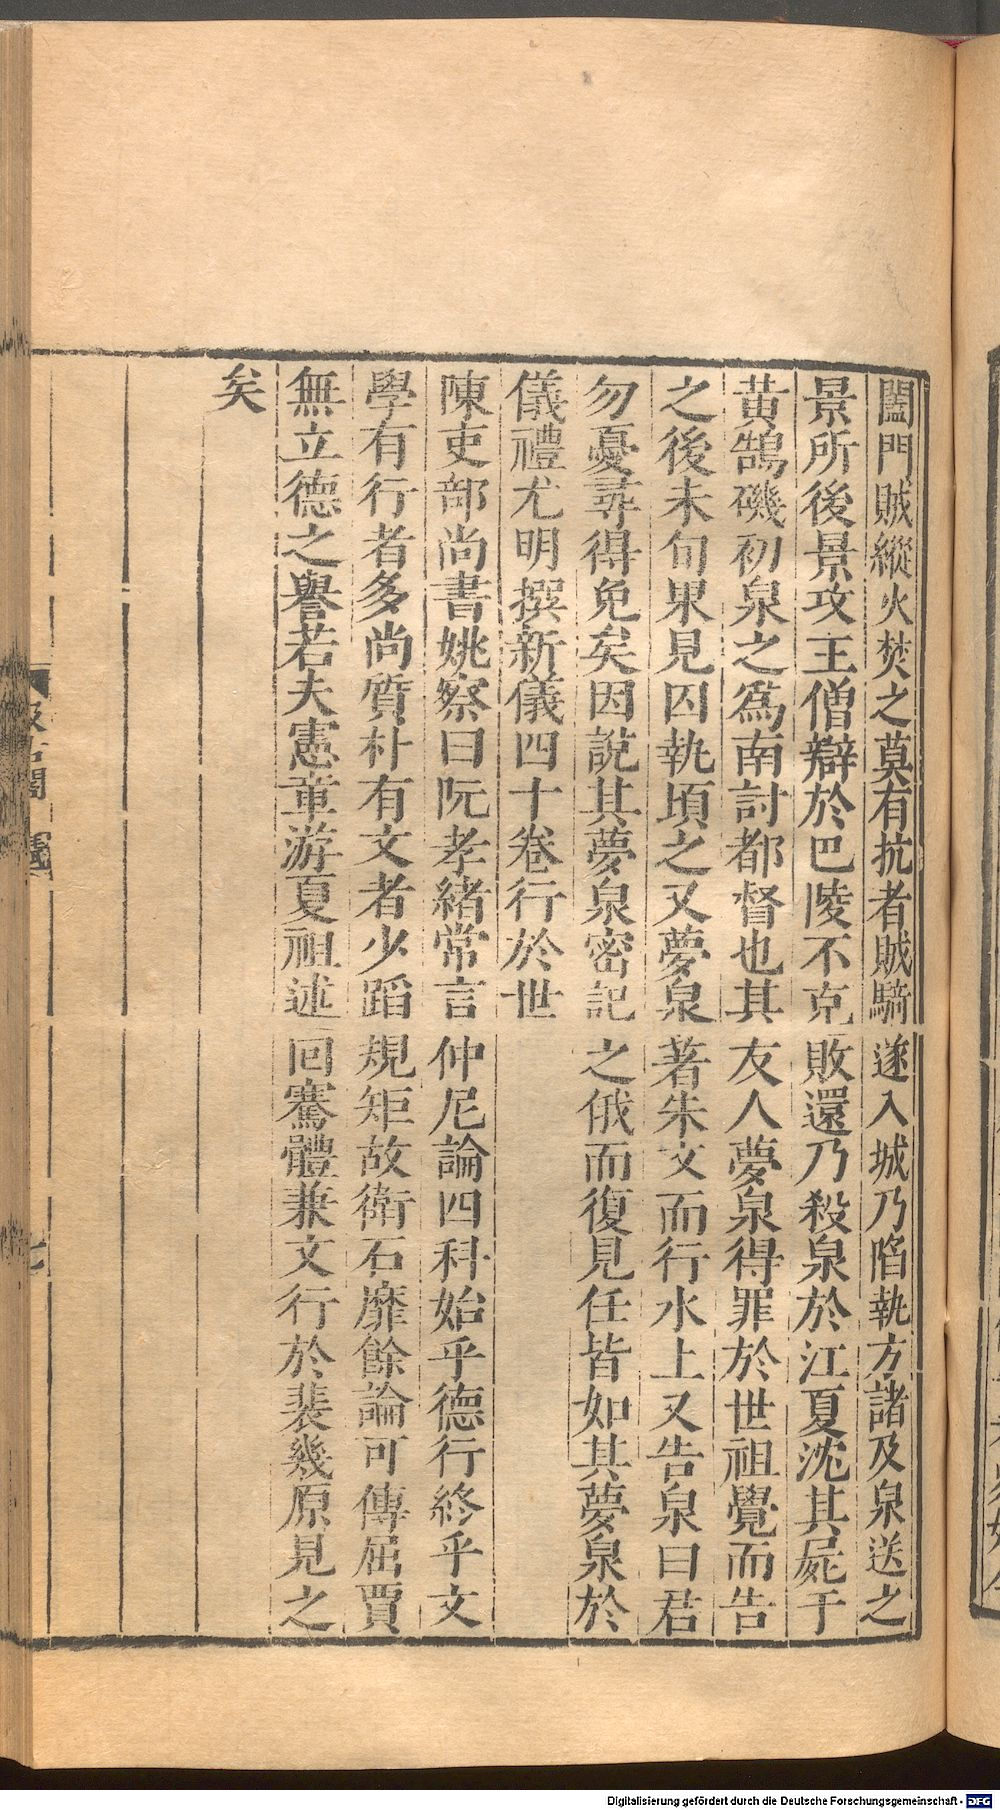 闔門賊縱火焚之莫有抗者賊騎遂入城乃陷執方諸及泉送之
景所後景攻王僧辯於巴陵不克敗還乃殺泉於江夏沈其屍于
黃鵠磯初泉之爲南討都督也其友人夢泉得罪於世祖覺而告
之後未旬果見囚執頃之又夢泉著朱文而行水上又告泉曰君
勿憂尋得免矣因說其夢泉密記之俄而復見任皆如其夢泉於
儀禮尤明撰新儀四十卷行於世
陳吏部尚書姚察曰阮孝緒常言仲尼論四科始乎德行終乎文
學有行者多尚質朴有文者少蹈規矩故衛石靡餘論可傳屈賈
無立德之譽若夫憲章游夏祖述回騫體兼文行於裴幾原見之
矣
Digitalisierung gefördert durch die Deutsche Forschungsgemeinschaft - DFG